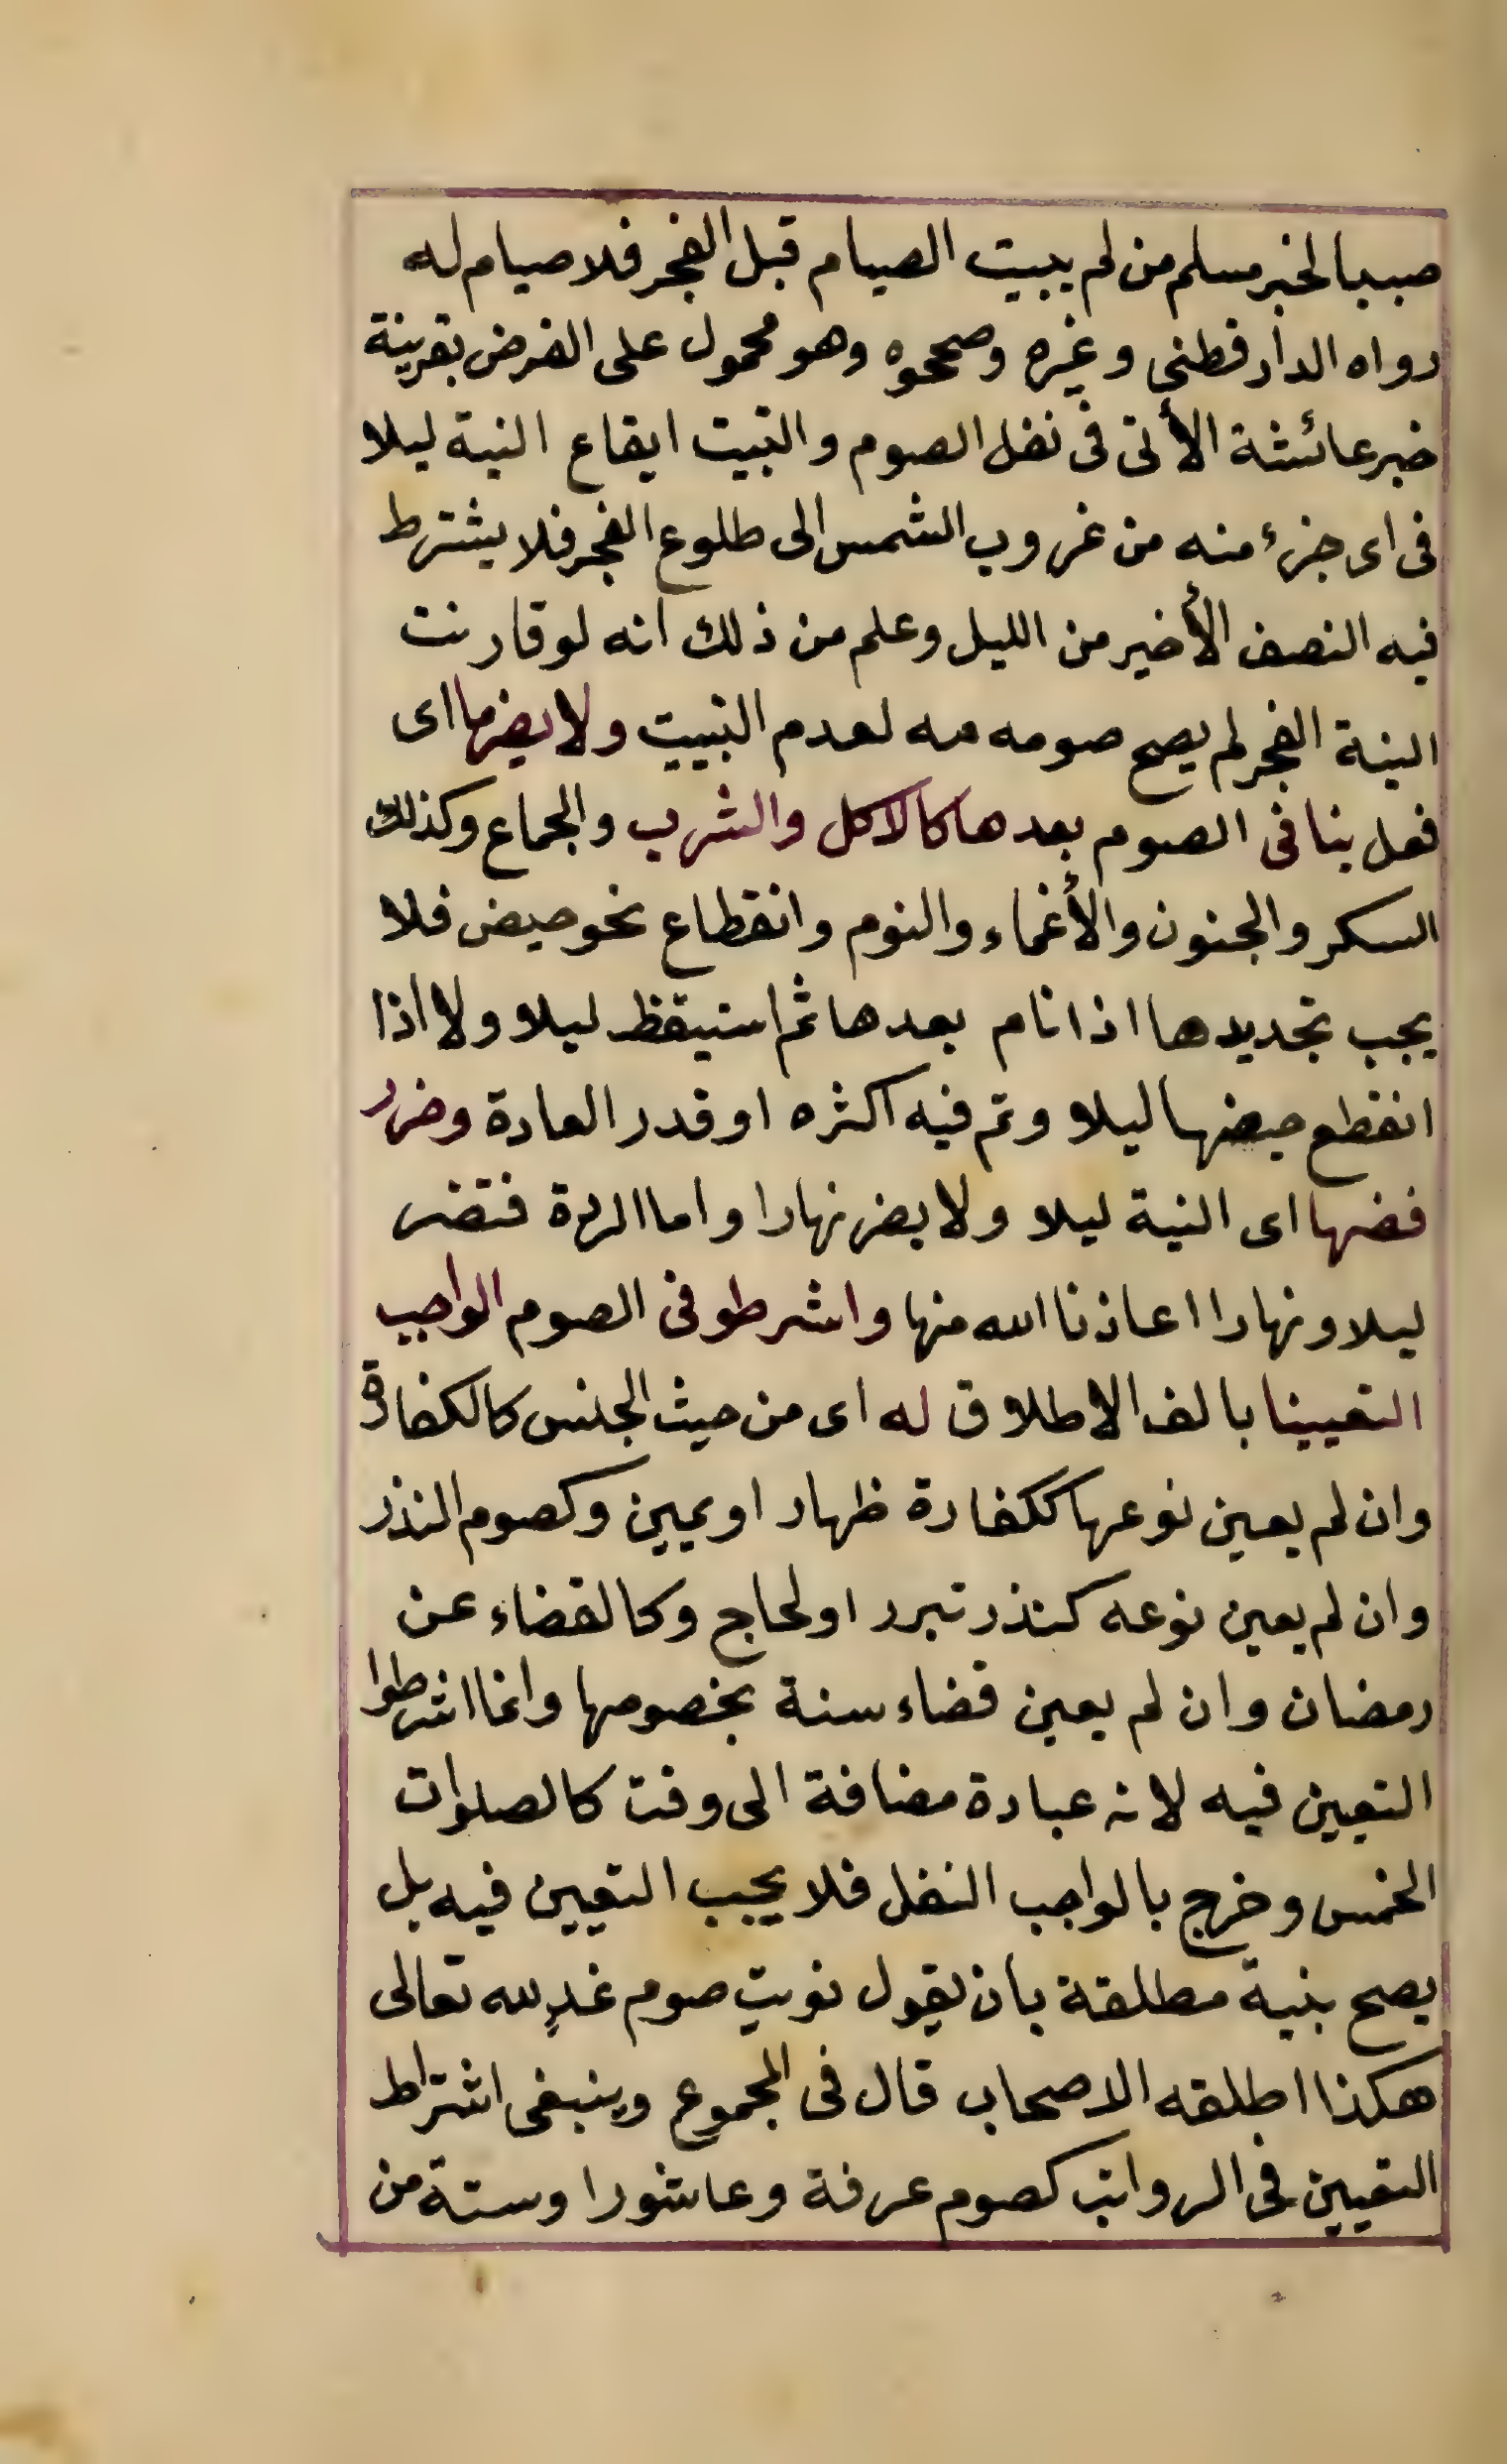 صبيا لخبر مسلم من لم يبيت الصيام قبل الفجر فلا صيام له
رواه الدار قطنى وغيره وصححوه وهو محمول على الفرض بقرينة
خبر عائشة الأتى فى نفل الصوم والتبيت ايقاع النية ليلا
فى اى جزء منه من غروب الشمس الى طلوع الفجر فلا يشترط
فيه النصف الأخير من الليل وعلم من ذلك انه لو قارنت
النية الفجر لم يصح صومه لعدم التبييت ولا يضرها اى
فعل ينافى الصوم بعدها كالاكل والشرب والجماع وكذلك
السكر والجنون والأغماء والنوم وانقطاع نحو حيض فلا
يجب تجديدها اذا نام بعدها ثم استيقظ ليلا ولا اذا
انقطع حيضها ليلا وتم فيه اكثره او قدر العادة وضرر
فضها اى النية ليلا ولا يضر نهارا واما الردة فتضر
ليلا ونهارا اعاذنا الله منها واشرطو فى الصوم الواجب
التعيينا بالف الاطلاق له اى من حيث الجنس كالكفارة
وان لم يعين نوعها ككفارة ظهار او يمين وكصوم النذر
وان لم يعين نوعه كنذر تبرر او لحاج وكالقضاء عن
رمضان وان لم يعين قضاء سنة بخصوصها وانما اشرطوا
التعيين فيه لانه عبادة مضافة الى وقت كالصلوات
الخمس وخرج بالواجب النفل فلا يجب التعيين فيه بل
يصح بنية مطلقة بان يقول نويت صوم غدٍ لله تعالى
هكذا اطلقه الاصحاب قال فى المجموع وينبغى اشتراط
التعيين فى الرواتب كصوم عرفة وعاشورا وستة من